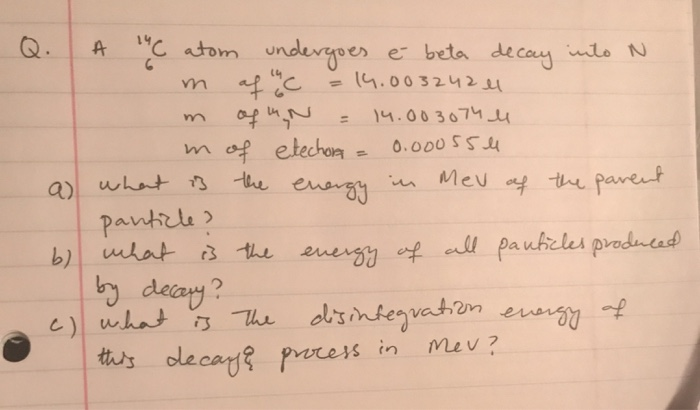 Q. A ¹⁴₆C atom undergoes e⁻ beta decay into N
m of ¹⁴₆C = 14.003242 u
m of ¹⁴₇N = 14.003074 u
m of electron = 0.00055 u
a) what is the energy in MeV of the parent
particle?
b) what is the energy of all particles produced
by decay?
c) what is the disintegration energy of
this decay process in MeV?